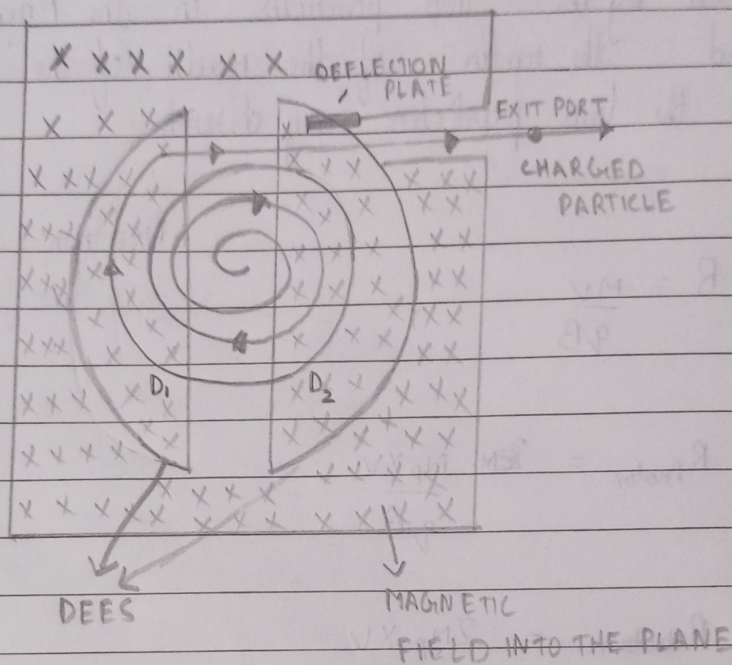 DEFLECTION
PLATE
EXIT PORT
CHARGED
PARTICLE
D₁
D₂
DEES
MAGNETIC
FIELD INTO THE PLANE